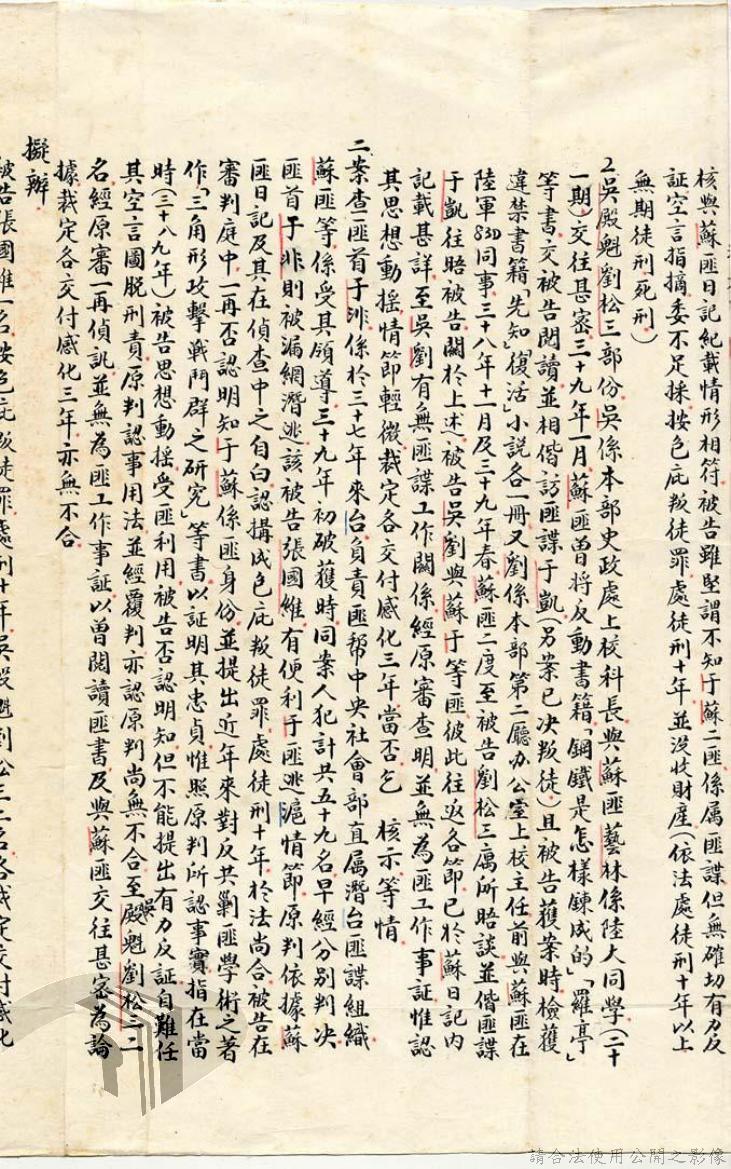 核與蘇匪日記紀載情形相符被告雖堅謂不知于蘇二匪係屬匪諜但無確切有力反
証空言指摘委不足採按包庇叛徒罪處徒刑十年並没收財產(依法處徒刑十年以上
無期徒刑死刑)
2吳殿魁劉松三部份吳係本部史政處上校科長與蘇匪藝林係陸大同學(二十
一期)交往甚密三十九年一月蘇匪曾將反動書籍「鋼鐵是怎樣鍊成的」「羅亭」
等書交被告閱讀並相偕訪匪諜于凱(另案已決叛徒)且被告獲案時檢獲
違禁書籍「先知」「復活」小說各一冊又劉係本部第二廳办公室上校主任前與蘇匪在
陸軍83D同事三十八年十一月及三十九年春蘇匪二度至被告劉松三寓所晤談並偕匪諜
于凱往晤被告關於上述被告吳劉與蘇于等匪彼此往返各節已於蘇日記內
記載甚詳至吳劉有無匪諜工作關係經原審查明並無為匪工作事証惟認
其思想動摇情節輕微裁定各交付感化三年當否乞 核示等情
二案查匪首于非係於三十七年來台負責匪帮中央社會部直属潛台匪諜組織
蘇匪等係受其領導三十九年初破獲時同案人犯計共五十九名早經分別判决
匪首于非則被漏網潛逃該被告張國維有便利于匪逃滬情節原判依據蘇
匪日記及其在偵查中之自白認搆成包庇叛徒罪處徒刑十年於法尚合被告在
審判庭中一再否認明知于蘇係匪身份並提出近年來對反共剿匪學術之著
作「三角形攻擊戰鬥群之研究」等書以証明其忠貞惟照原判所認事實指在當
時(三十八九年)被告思想動摇受匪利用被告否認明知但不能提出有力反証自難任
其空言圖脱刑責原判認事用法並經覆判亦認原判尚無不合至吳殿魁劉松三二
名經原審一再偵訊並無為匪工作事証以曾閱讀匪書及與蘇匪交往甚密為論
據裁定各交付感化三年亦無不合
擬辦
被告張國維一名按包庇叛徒罪處刑十年吳殿魁劉松三二名各裁定交付感化
請合法使用公開之影像